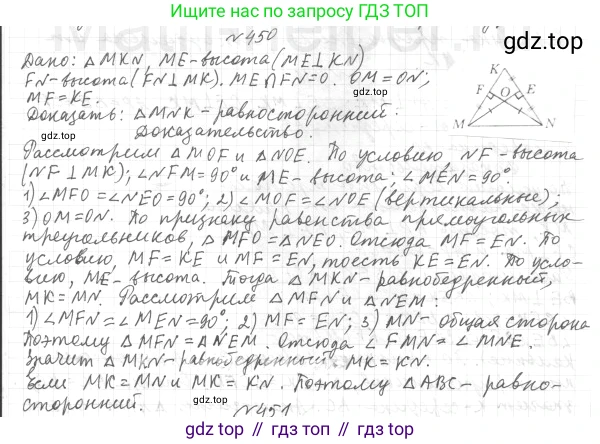 Ищите нас по запросу ГДЗ ТОП
№450
gdz.top
Дано: △MKN, ME-высота (ME⊥KN)
FN-высота (FN⊥MK). ME∩FN=O. OM=ON;
MF=KE.
Доказать: △MNK-равносторонний.
Доказательство.
K
F O E
M N
Рассмотрим △MOF и △NOE. По условию, NF-высота
(NF⊥MK); ∠NFM=90° и ME-высота; ∠MEN=90°.
1) ∠MFO=∠NEO=90°; 2) ∠MOF=∠NOE (вертикальные);
3) OM=ON. По признаку равенства прямоугольных
треугольников, △MFO=△NEO. Отсюда MF=EN. По
условию, MF=KE и MF=EN, тоесть KE=EN. По усло-
вию, ME-высота. Тогда △MKN-равнобедренный,
MK=MN. Рассмотрим △MFN и △NEM:
1) ∠MFN=∠MEN=90°; 2) MF=EN; 3) MN-общая сторона
Поэтому △MFN=△NEM. Отсюда ∠FMN=∠MNE.
Значит △MKN-равнобедренный. MK=KN.
Если MK=MN и MK=KN, Поэтому △ABC-равно-
сторонний.
gdz.top
№451
gdz.top // gdz.top // gdz.top